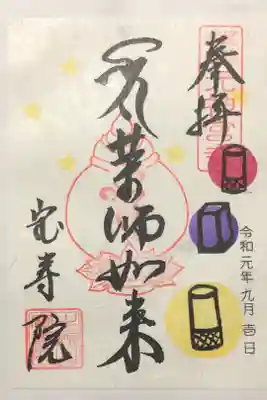 奉拝
薬師如来
宝寿院
令和元年九月壱日